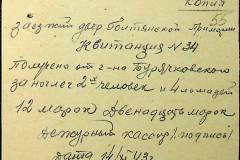 Копия
53
Заезжий двор Голтянской Примарии
Квитанция N 34
Получено от г-на Бурячковского
за ночлег 2х человек и 4 лошадей
12 марок Двенадцать марок
Дежурный кассир /подпись/
дата 14/XI 43г.